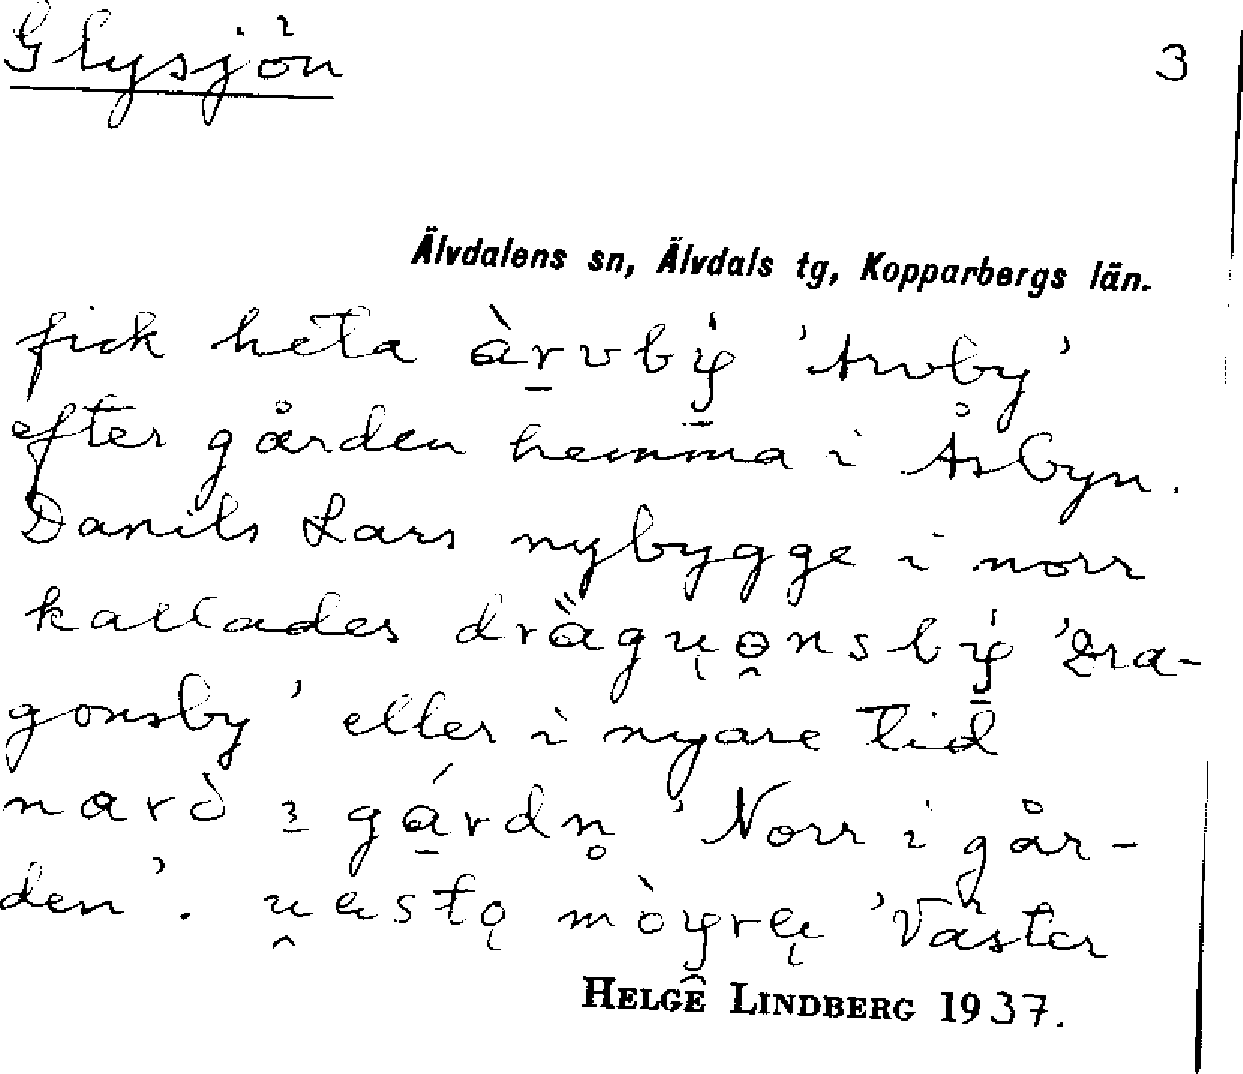 Glysjön 3
Älvdalens sn, Älvdals tg, Kopparbergs län.
fick heta àrvbý 'Arvby'
efter gården hemma i Åsbyn.
Danils Lars nybygge i norr
kallades drä̀gu̢ǫnsbý 'Dra-
gonsby' eller i nyare tid
nard ı gárdn̥ 'Norr i går-
den'. u̯æstǫ mòy̯ræ̢ 'Väster
HELGE LINDBERG 1937.